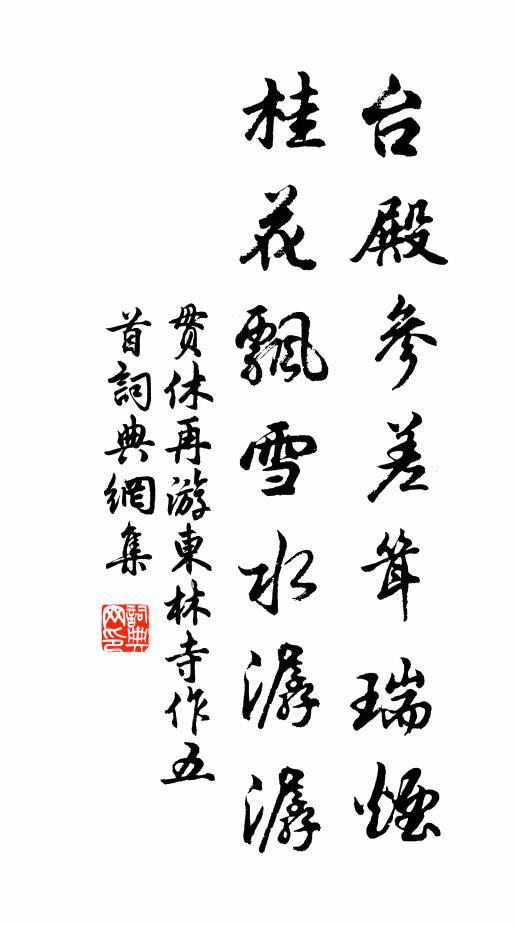 台殿參差耸瑞煙
桂花飄雪水潺潺
贯休再游東林寺作五
首詞典網集
詞典网印